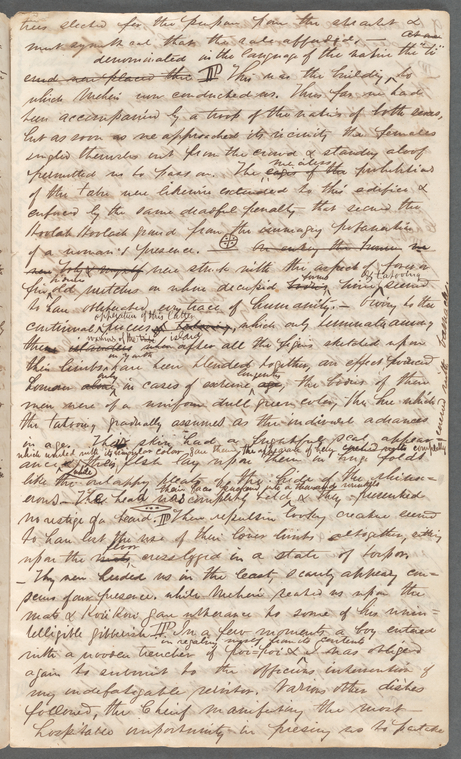 trees selected for the purpose from the straitest &
most symmetrical, that the vale afforded. — as was
denominated in the language of the native the "ti"
This was the building, to
which Mehevi now conducted us. Thus far we had
been accompanied by a troop of the natives of both sexes,
but as soon as we approached its vicinity the females
singled themselves out from the crowd & standing aloof
permitted us to pass on. The merciless prohibitions
of the tabu were likewise extended to this edifice &
enforced by the same dreadful penalty that secured the
Hoolah Hoolah ground from the imaginary profanation
of a woman's presence. On entering the
were struck with the aspect of four or
five old wretches on whose decrepid forms time & tattooing seemed
to have obliterated every trace of humanity. — Owing to the
continued application of this latter process, which only terminates among
the warriors of the island after all the figures sketched upon
their limbs in youth have been blended together, an effect produced
however only in cases of extreme longevity, the bodies of these
men were of a uniform dull green color, the hue which
the tattooing gradually assumes as the individual advances
in age. Their skin had a frightful scaly appear
ance which united with its singular color gave them
flesh lay upon them in huge folds
like the overlapping plaits on the flank of the rhinoc-
eros. — The head was completely bald & they presented
no vestige of a beard. These repulsive looking creatures seemed
to have lost the use of their lower limbs altogether, sitting
upon the floor crosslegged in a state of torpor.
— They never heeded us in the least, scarcely appearing con-
scious of our presence, while Mehevi seated us upon the
mats & Kori Kori gave utterance to some of his unin-
telligible gibberish. In a few moments a boy entered
with a wooden trencher of poi-poi & in regaling myself from its contents I was obliged
again to submit to the officious intervention of
my indefatigable servitor. Various other dishes
followed, the Chief manifesting the most
hospitable importunity in pressing us to partake